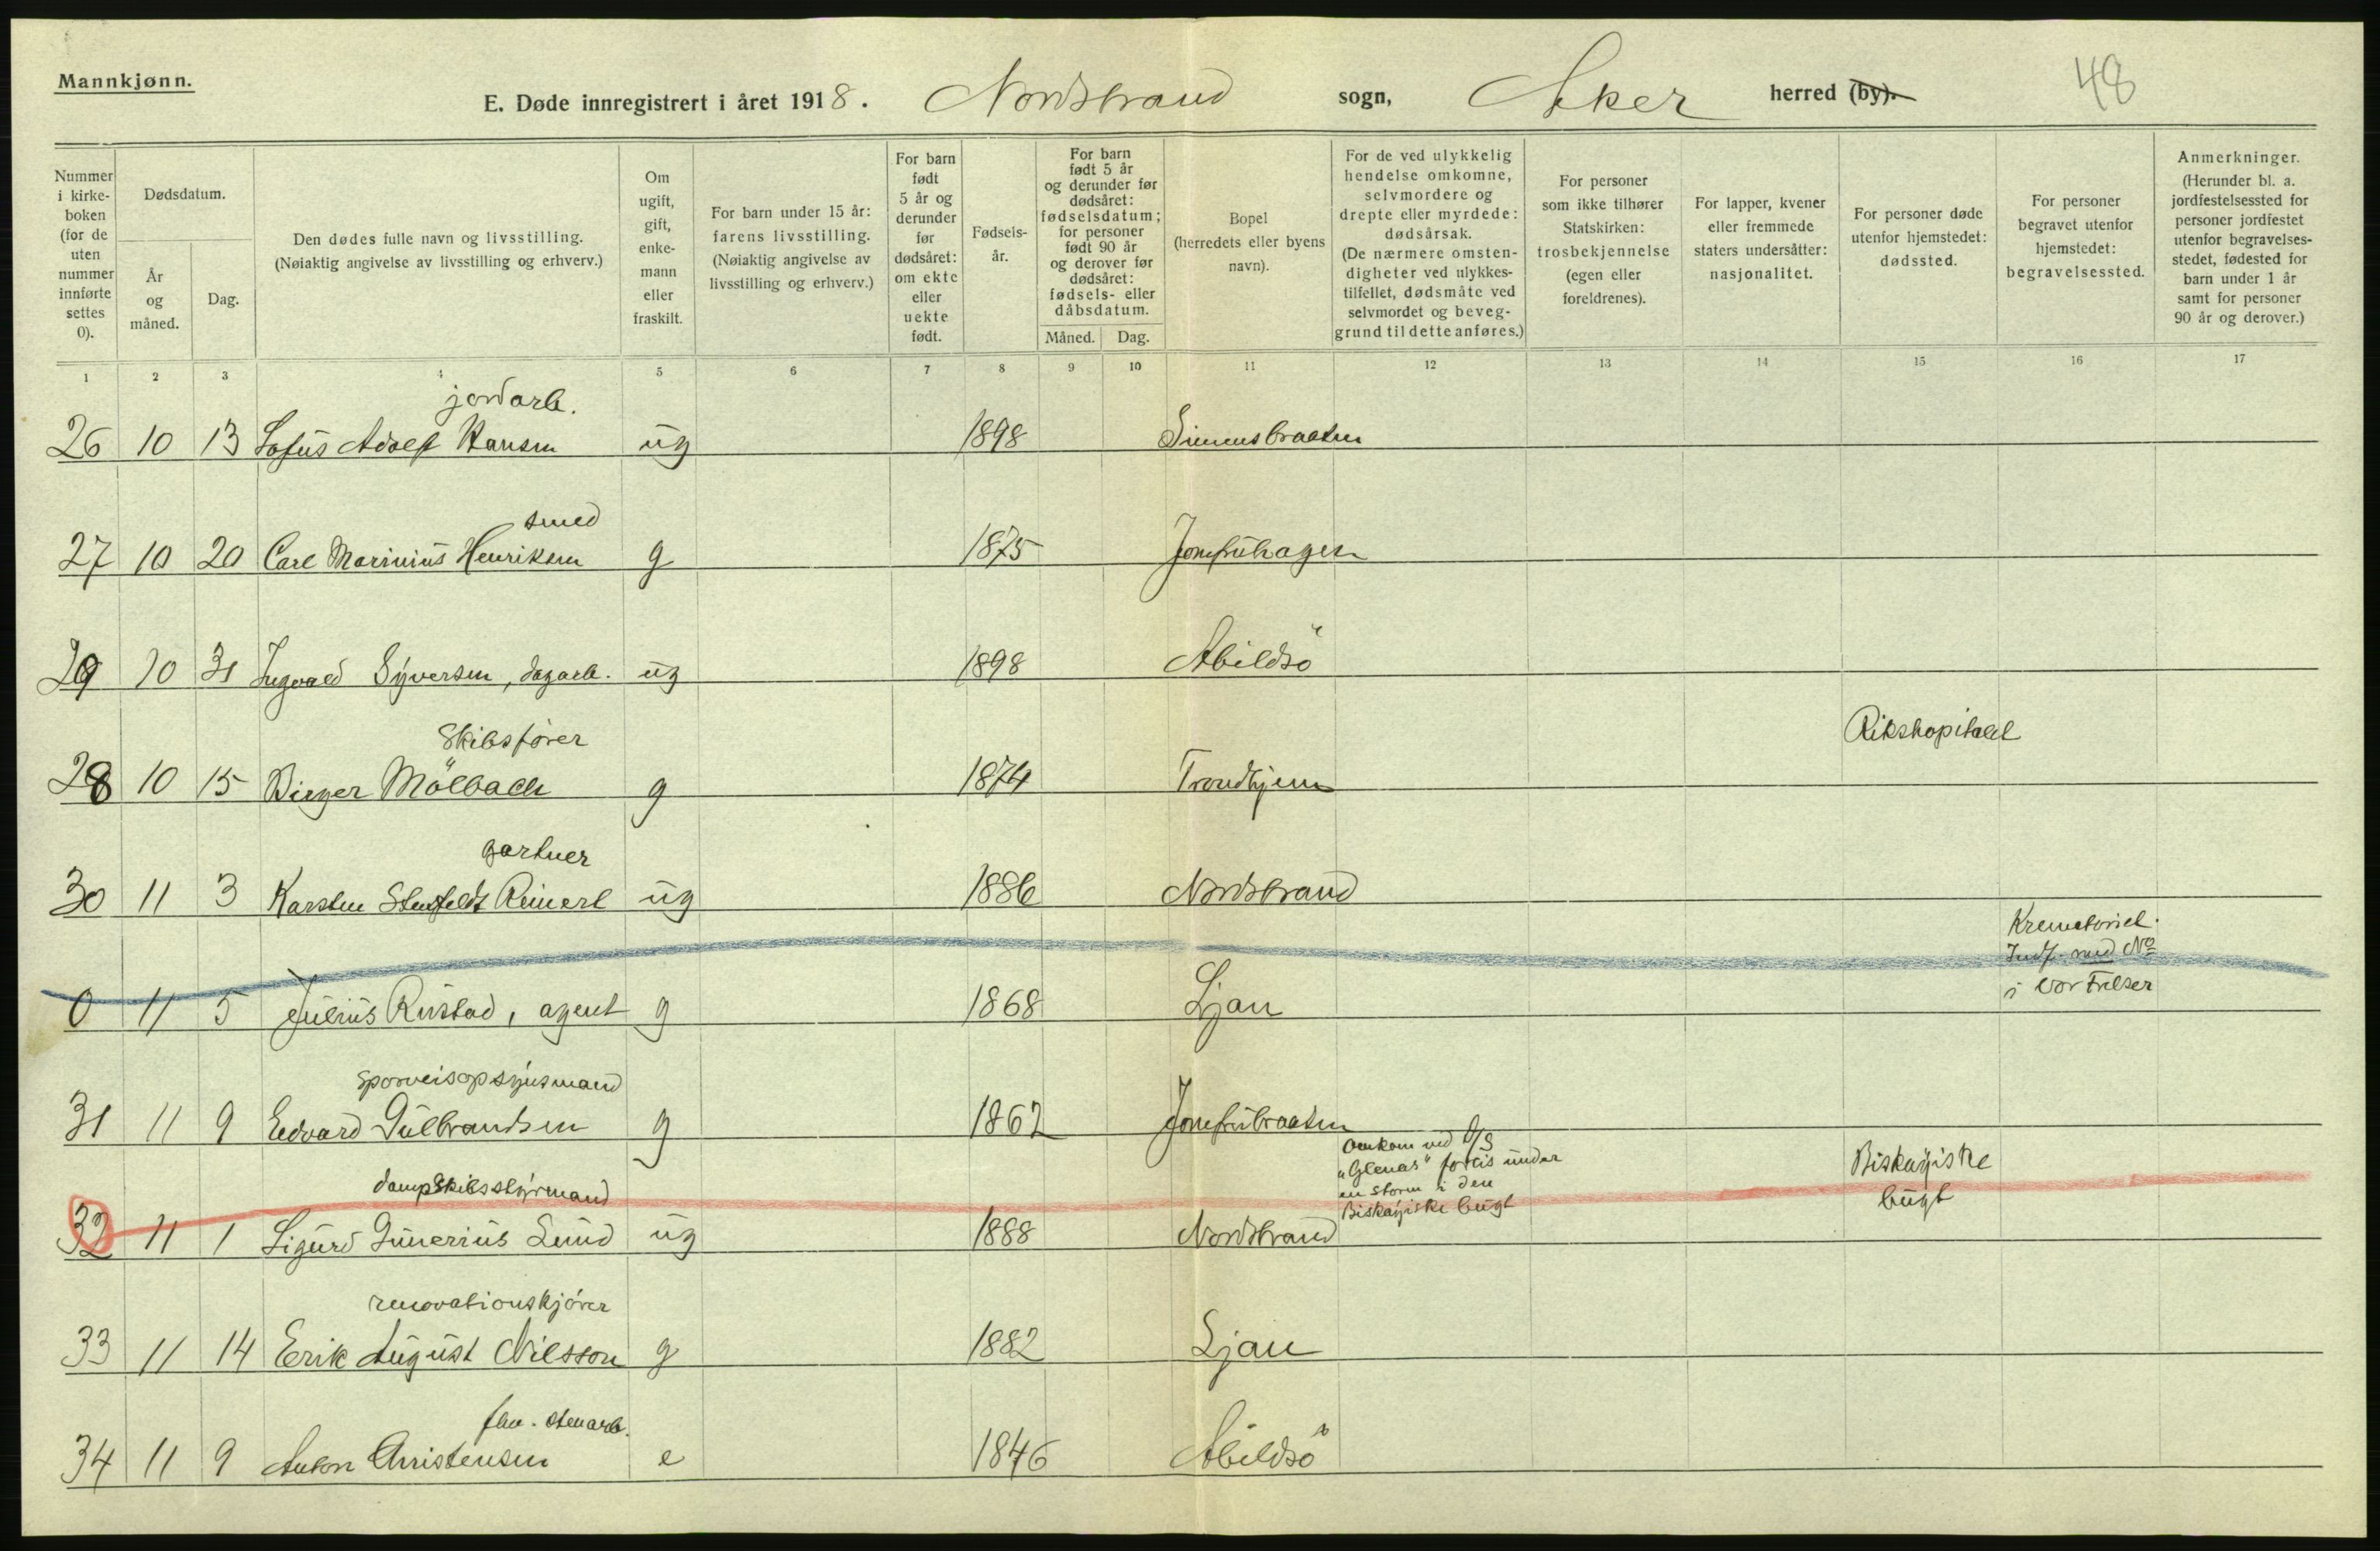 Mannkjønn.
E. Døde innregistrert i året 1918. Nordstrand sogn, Aker herred (by). 48
Nummer i kirke-boken (for de uten nummer innførte settes 0).
Dødsdatum.
År og måned.
Dag.
Den dødes fulle navn og livsstilling.
(Nøiaktig angivelse av livsstilling og erhverv.)
Om ugift, gift, enke-mann eller fraskilt.
For barn under 15 år: farens livsstilling.
(Nøiaktig angivelse av livsstilling og erhverv.)
For barn født 5 år og derunder før dødsåret: om ekte eller uekte født.
Fødsels-år.
For barn født 5 år og derunder før dødsåret: fødselsdatum; for personer født 90 år og derover før dødsåret: fødsels- eller dåbsdatum.
Måned. Dag.
Bopel (herredets eller byens navn).
For de ved ulykkelig hendelse omkomne, selvmordere og drepte eller myrdede: dødsårsak.
(De nærmere omsten-digheter ved ulykkes-tilfellet, dødsmåte ved selvmordet og beveg-grund til dette anføres.)
For personer som ikke tilhører Statskirken: trosbekjennelse (egen eller foreldrenes).
For lapper, kvener eller fremmede staters undersåtter: nasjonalitet.
For personer døde utenfor hjemstedet: dødssted.
For personer begravet utenfor hjemstedet: begravelsessted.
Anmerkninger.
(Herunder bl. a. jordfestelsessted for personer jordfestet utenfor begravelses-stedet, fødested for barn under 1 år samt for personer 90 år og derover.)
1 2 3 4 5 6 7 8 9 10 11 12 13 14 15 16 17
jordarb.
26 10 13 Lofus Adolf Hansen ug 1898 Simensbraaten
smed
27 10 20 Carl Marinius Henriksen g 1875 Jomfruhagen
29 10 31 Ingvald Syversen, dagarb. ug 1898 Abildsö
Skibsfører Rikshopitalet
28 10 15 Birger Mölbach g 1874 Trondhjem
gartner
30 11 3 Karsten Stenfeldt Reinert ug 1886 Nordstrand
Krematoriet.
Indf. med No
i Vor Frelser
0 11 5 Julius Rustad, agent g 1868 Ljan
sporveisopsynsmand
31 11 9 Edvard Gulbrandsen g 1862 Jomfrubraaten
dampskibsstyrmand
Omkom ved D/S
"Glenas" forlis under
en storm i den
Biskayiske bugt
Biskayiske
bugt
32 11 1 Sigurd Gunerius Lund ug 1888 Nordstrand
renovationskjører
33 11 14 Erik August Nilsson g 1882 Ljan
fhv. stenarb.
34 11 9 Anton Christensen e 1846 Abildsö